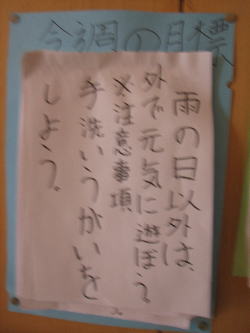 今週の目標
雨の日以外は、
外で元気に遊ぼう
※注意事項
手洗いうがいを
しよう。